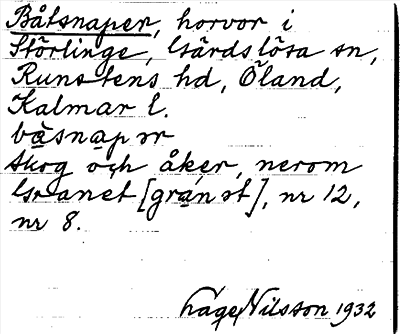 Båtsnaper, horvor i
Störlinge, Gärdslösa sn,
Runstens hd, Öland,
Kalmar l.
bàsnap ər
Skog och åker, nerom
Granet [gránət], nr 12,
nr 8.
Åge Nilsson 1932